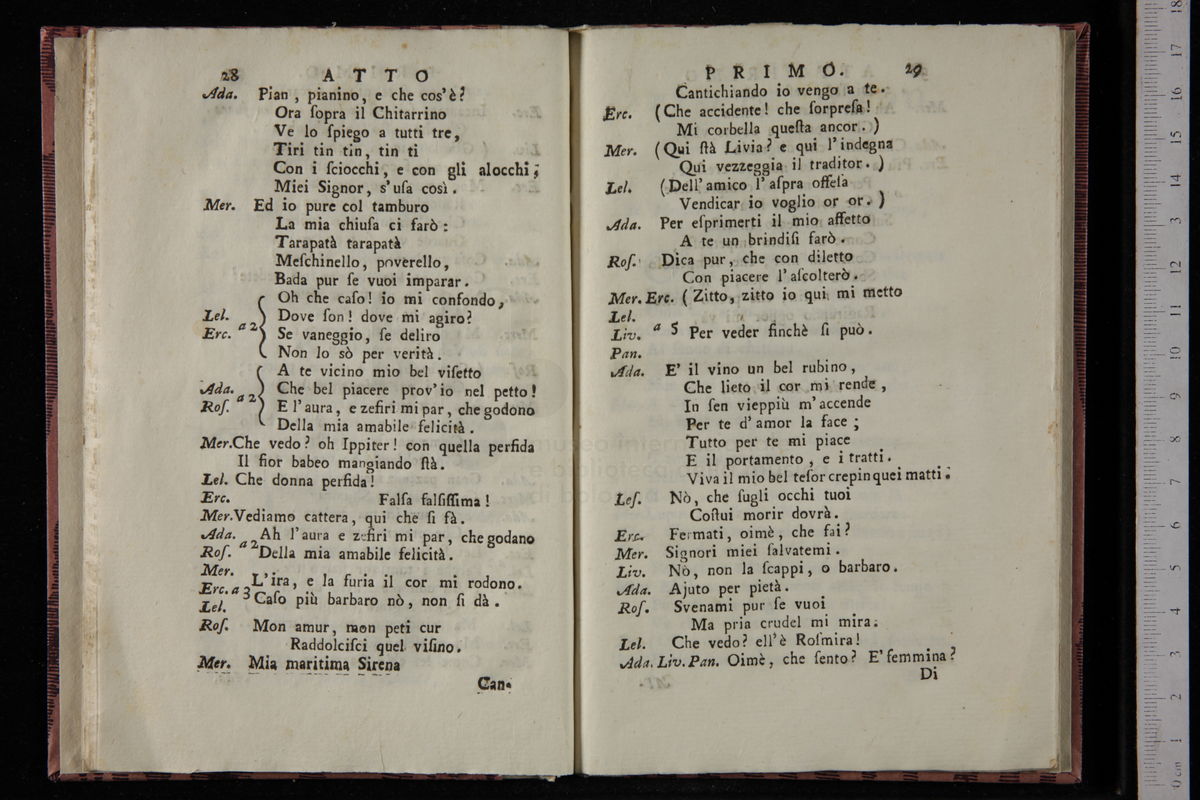 28 ATTO
Ada. Pian, pianino, e che cos'è?
Ora ſopra il Chitarrino
Ve lo ſpiego a tutti tre,
Tiri tin tin, tin ti
Con i ſciocchi, e con gli alocchi;
Miei Signor, s'uſa così.
Mer. Ed io pure col tamburo
La mia chiuſa ci farò:
Tarapatà tarapatà
Meſchinello, poverello,
Bada pur ſe vuoi imparar.
Oh che caſo! io mi confondo,
Lel. Dove ſon! dove mi agiro?
Erc. a 2 Se vaneggio, ſe deliro
Non lo sò per verità.
A te vicino mio bel viſetto
Ada. Che bel piacere prov'io nel petto!
Roſ. a 2 E l'aura, e zefiri mi par, che godono
Della mia amabile felicità.
Mer. Che vedo? oh Ippiter! con quella perfida
Il fior babeo mangiando ſtà.
Lel. Che donna perfida!
Erc. Falſa falſiſſima!
Mer. Vediamo cattera, qui che ſi fà.
Ada. Ah l'aura e zefiri mi par, che godano
Roſ. a 2 Della mia amabile felicità.
Mer.
Erc. a 3 L'ira, e la furia il cor mi rodono.
Lel. Caſo più barbaro nò, non ſi dà.
Roſ. Mon amur, mon peti cur
Raddolciſci quel viſino.
Mer. Mia maritima Sirena
Can-
PRIMO. 29
Cantichiando io vengo a te.
Erc. (Che accidente! che ſorpreſa!
Mi corbella queſta ancor.)
Mer. (Qui ſtà Livia? e qui l'indegna
Qui vezzeggia il traditor.)
Lel. (Dell'amico l'aſpra offeſa
Vendicar io voglio or or.)
Ada. Per eſprimerti il mio affetto
A te un brindiſi farò.
Roſ. Dica pur, che con diletto
Con piacere l'aſcolterò.
Mer. Erc. (Zitto, zitto io qui mi metto
Lel.
Liv. a 5 Per veder finchè ſi può.
Pan.
Ada. E' il vino un bel rubino,
Che lieto il cor mi rende,
In ſen vieppiù m'accende
Per te d'amor la face;
Tutto per te mi piace
E il portamento, e i tratti.
Viva il mio bel teſor crepin quei matti.
Leſ. Nò, che ſugli occhi tuoi
Coſtui morir dovrà.
Erc. Fermati, oimè, che fai?
Mer. Signori miei ſalvatemi.
Liv. Nò, non la ſcappi, o barbaro.
Ada. Ajuto per pietà.
Roſ. Svenami pur ſe vuoi
Ma pria crudel mi mira.
Lel. Che vedo? ell'è Roſmira!
Ada. Liv. Pan. Oimè, che ſento? E' femmina?
Di